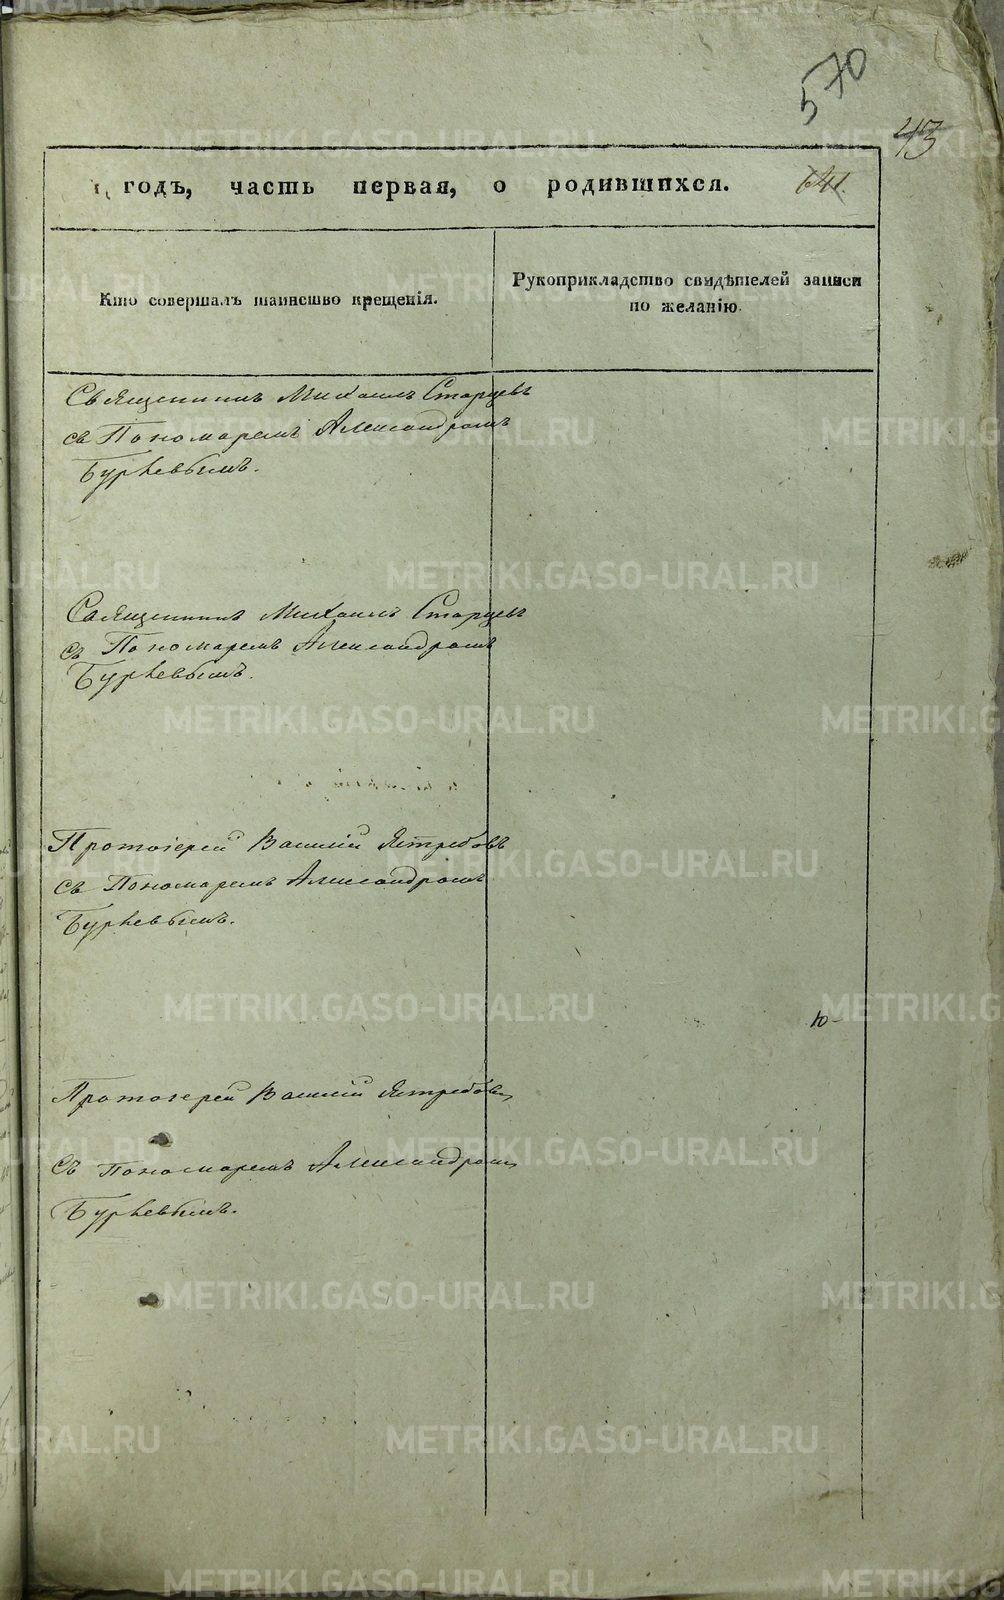 570
43
годъ, часть первая, о родившихся.
641.
Кто совершалъ таинство крещенія.
Рукоприкладство свидѣтелей записи
по желанію.
Священникъ Михаилъ Старцевъ
съ Пономаремъ Александромъ
Бурѣевымъ.
Священникъ Михаилъ Старцевъ
съ Пономаремъ Александромъ
Бурѣевымъ.
Протоіерей Василій Ястребовъ
съ Пономаремъ Александромъ
Бурѣевымъ.
Ю
Протоіерей Василій Ястребовъ
съ Пономаремъ Александромъ
Бурѣевымъ.
METRIKI.GASO-URAL.RU